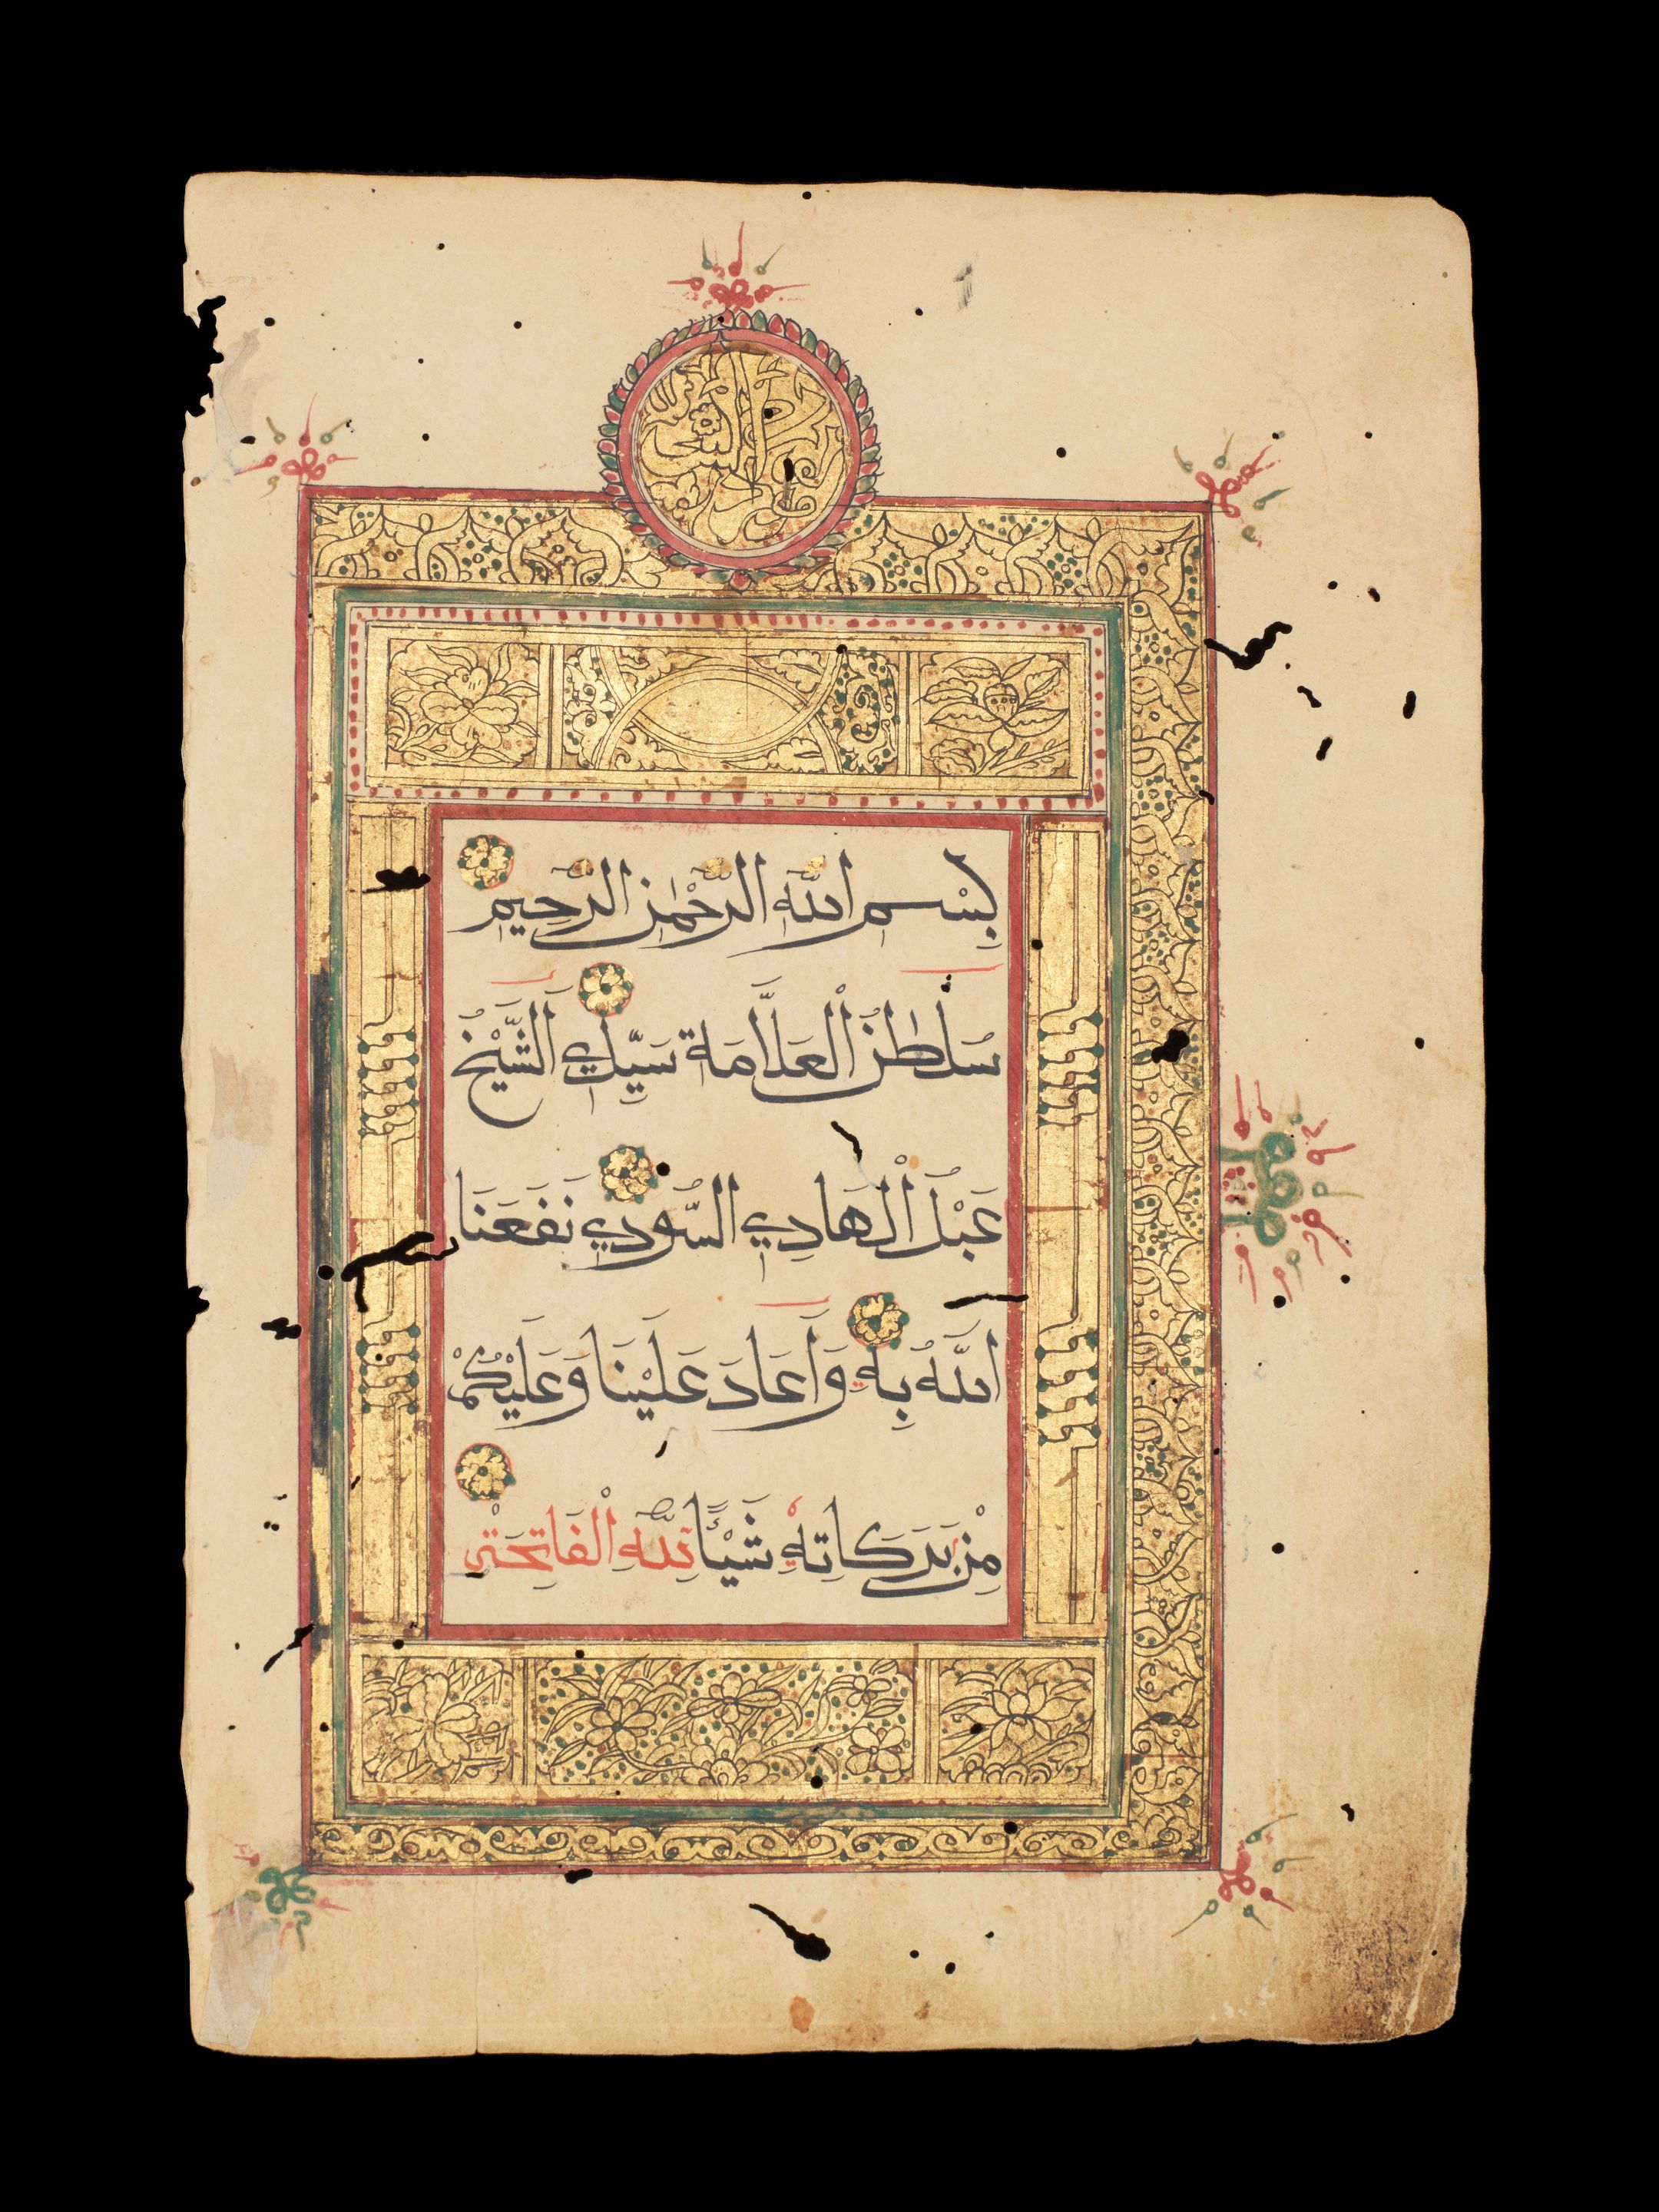 بِسْمِ اللّٰهِ الرَّحْمٰنِ الرَّحِيمِ
سُلطٰنُ الْعَلَّامَة سَيِّدِي الشَّيْخُ
عَبْدُ الْهَادِي السُّودِي نَفَعَنَا
اللَّهُ بِهِ وَأَعَادَ عَلَيْنَا وَعَلَيْكُمْ
مِنْ بَرَكَاتِهْ شَيْئًا لِلَّهِ الْفَاتِحَةْ